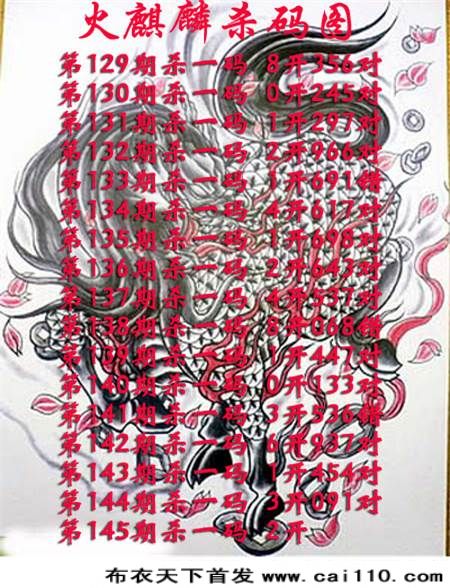 火麒麟杀码图
第129期杀一码 8开356对
第130期杀一码 0开245对
第131期杀一码 1开297对
第132期杀一码 2开966对
第133期杀一码 1开691错
第134期杀一码 4开617对
第135期杀一码 1开698对
第136期杀一码 2开643对
第137期杀一码 4开537对
第138期杀一码 8开068错
第139期杀一码 1开447对
第140期杀一码 0开133对
第141期杀一码 3开536错
第142期杀一码 6开937对
第143期杀一码 1开454对
第144期杀一码 3开091对
第145期杀一码 2开
布衣天下首发 www.cai110.com